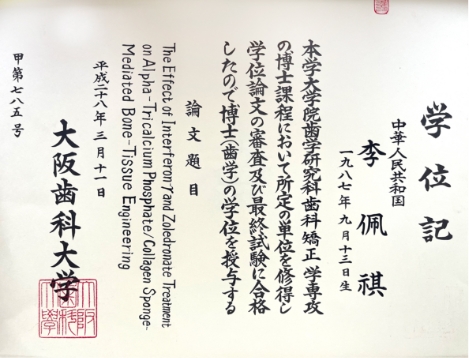 学位記
中華人民共和国
李佩祺
一九八七年九月十三日生
本学大学院歯学研究科歯科矯正学専攻
の博士課程において所定の単位を修得し
学位論文の審査及び最終試験に合格
したので博士(歯学)の学位を授与する
論文題目
The Effect of Interferon γ and Zoledronate Treatment
on Alpha-Tricalcium Phosphate/Collagen Sponge-
Mediated Bone-Tissue Engineering
平成二十八年三月十一日
大阪歯科大学
甲第七八五号